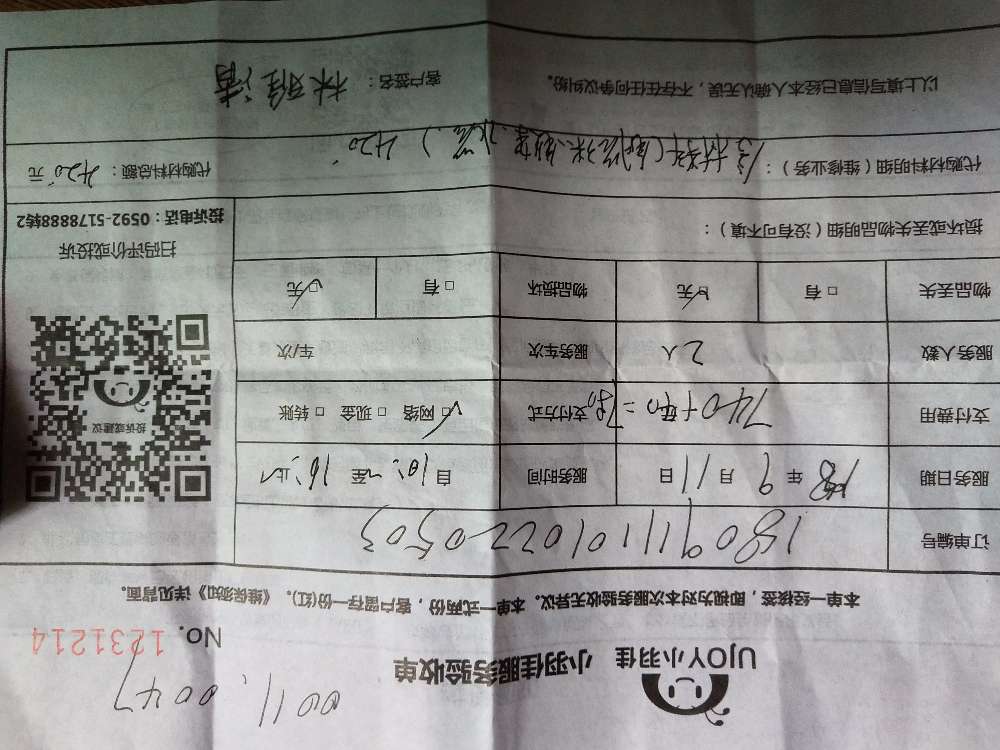 UJOY小羽佳 小羽佳服务验收单
0011, 0047
No. 1231214
本单一经核签，即视为对本次服务验收无异议。本单一式两份，客户留存一份(红)。《维保须知》详见背面。
订单编号 1809111010220503
服务日期 18年9月11日 服务时间 自10:至16:止
支付费用 740+40=780 支付方式 ☑网络 □现金 □转账
服务人数 2人 服务车次 车/次
物品丢失 □有 ☑无 物品损坏 □有 ☑无
投诉或建议
扫码评价或投诉
投诉电话：0592-5178888转2
损坏或丢失物品明细（没有可不填）：
代购材料明细（维修业务）： 材料 420 代购材料总额：420元
以上填写信息已经本人确认无误，不存在任何争议纠纷。 客户签名：林雅清